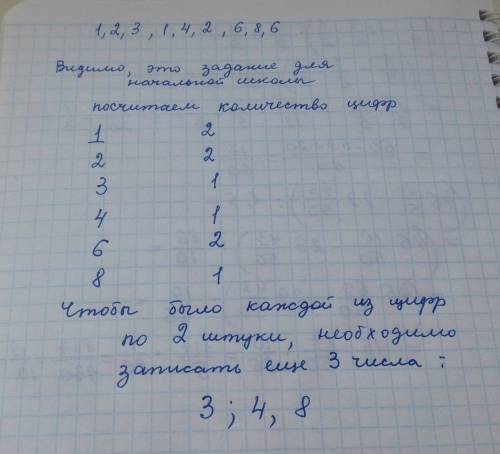 1, 2, 3, 1, 4, 2, 6, 8, 6
Видимо, это задание для
начальной школы
посчитаем количество цифр
1 2
2 2
3 1
4 1
6 2
8 1
Чтобы было каждой из цифр
по 2 штуки, необходимо
записать еще 3 числа:
3; 4, 8